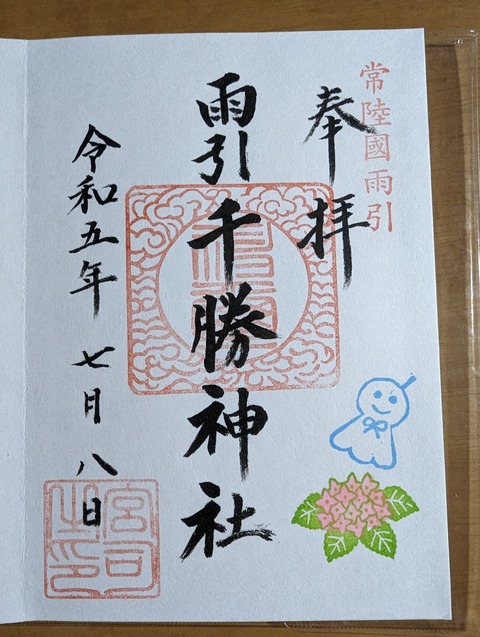 常陸國雨引
奉拝
雨引千勝神社
令和五年七月八日
宮司之印